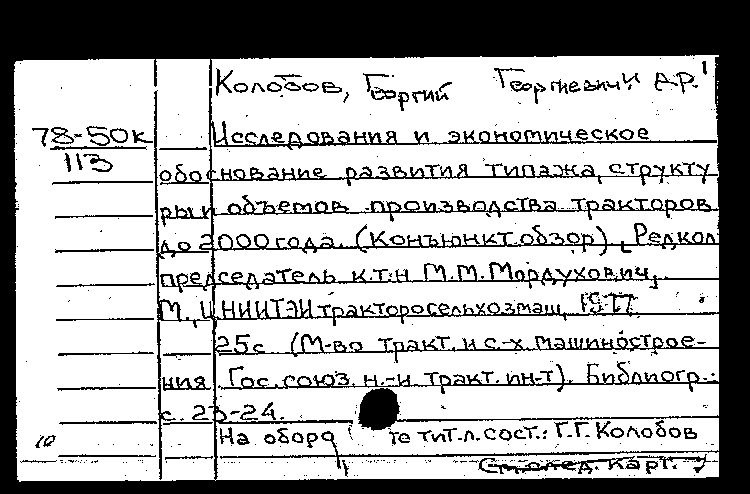 Колобов, Георгий Георгиевич и др.
78-50к
113
Исследования и экономическое
обоснование развития типажа, структу
ры и объемов производства тракторов
до 2000 года. (Конъюнкт. обзор) [Редкол
председатель к.т.н М.М. Мордухович]
М., ЦНИИТЭИ тракторосельхозмаш, 1977
25с (М-во тракт. и с.-х. машинострое-
ния Гос. союз. н.-и. тракт. ин-т). Библиогр.:
с. 23-24.
На оборо те тит. л. сост.: Г.Г. Колобов
См. след. карт.